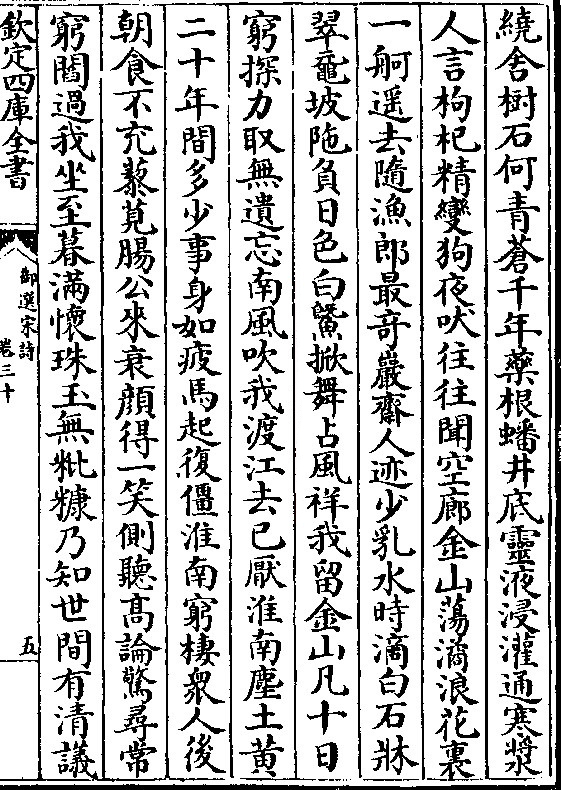 繞舍樹石何青蒼千年藥根蟠井底靈液浸灌通寒漿
人言枸杞精變狗夜吠往往聞空廊金山蕩潏浪花裏
一舸遥去隨漁郎最竒巖齋人迹少乳水時滴白石牀
翠黿坡陁負日色白鱀掀舞占風祥我留金山凡十日
窮探力取無遺忘南風吹我渡江去已厭淮南塵土黄
二十年間多少事身如疲馬起復僵淮南窮棲衆人後
朝食不充藜莧腸公來衰顔得一笑側聽髙論驚尋常
窮閻過我坐至暮滿懷珠玉無粃糠乃知世間有清議
欽定四庫全書
御選宋詩
卷三十
五